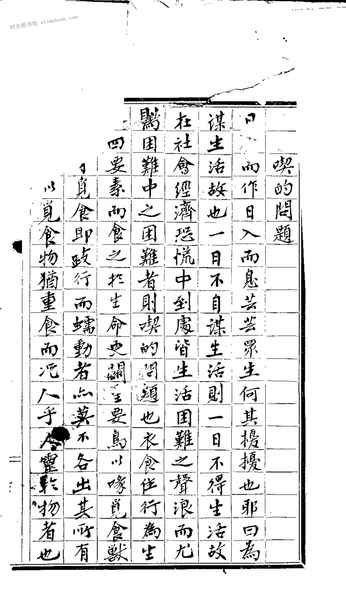 喫的問題
日 而作日入而息芸芸眾生何其擾擾也耶曰為
謀生活故也一日不自謀生活則一日不得生活故
在社會經濟恐慌中到處皆生活困難之聲浪而尤
為困難中之困難者則喫的問題也衣食住行為生
四要素而食之於生命更關主要鳥以喙覓食獸
覓食即跂行而蠕動者亦莫不各出其所有
以覓食物猶重食而况人乎人靈於物者也